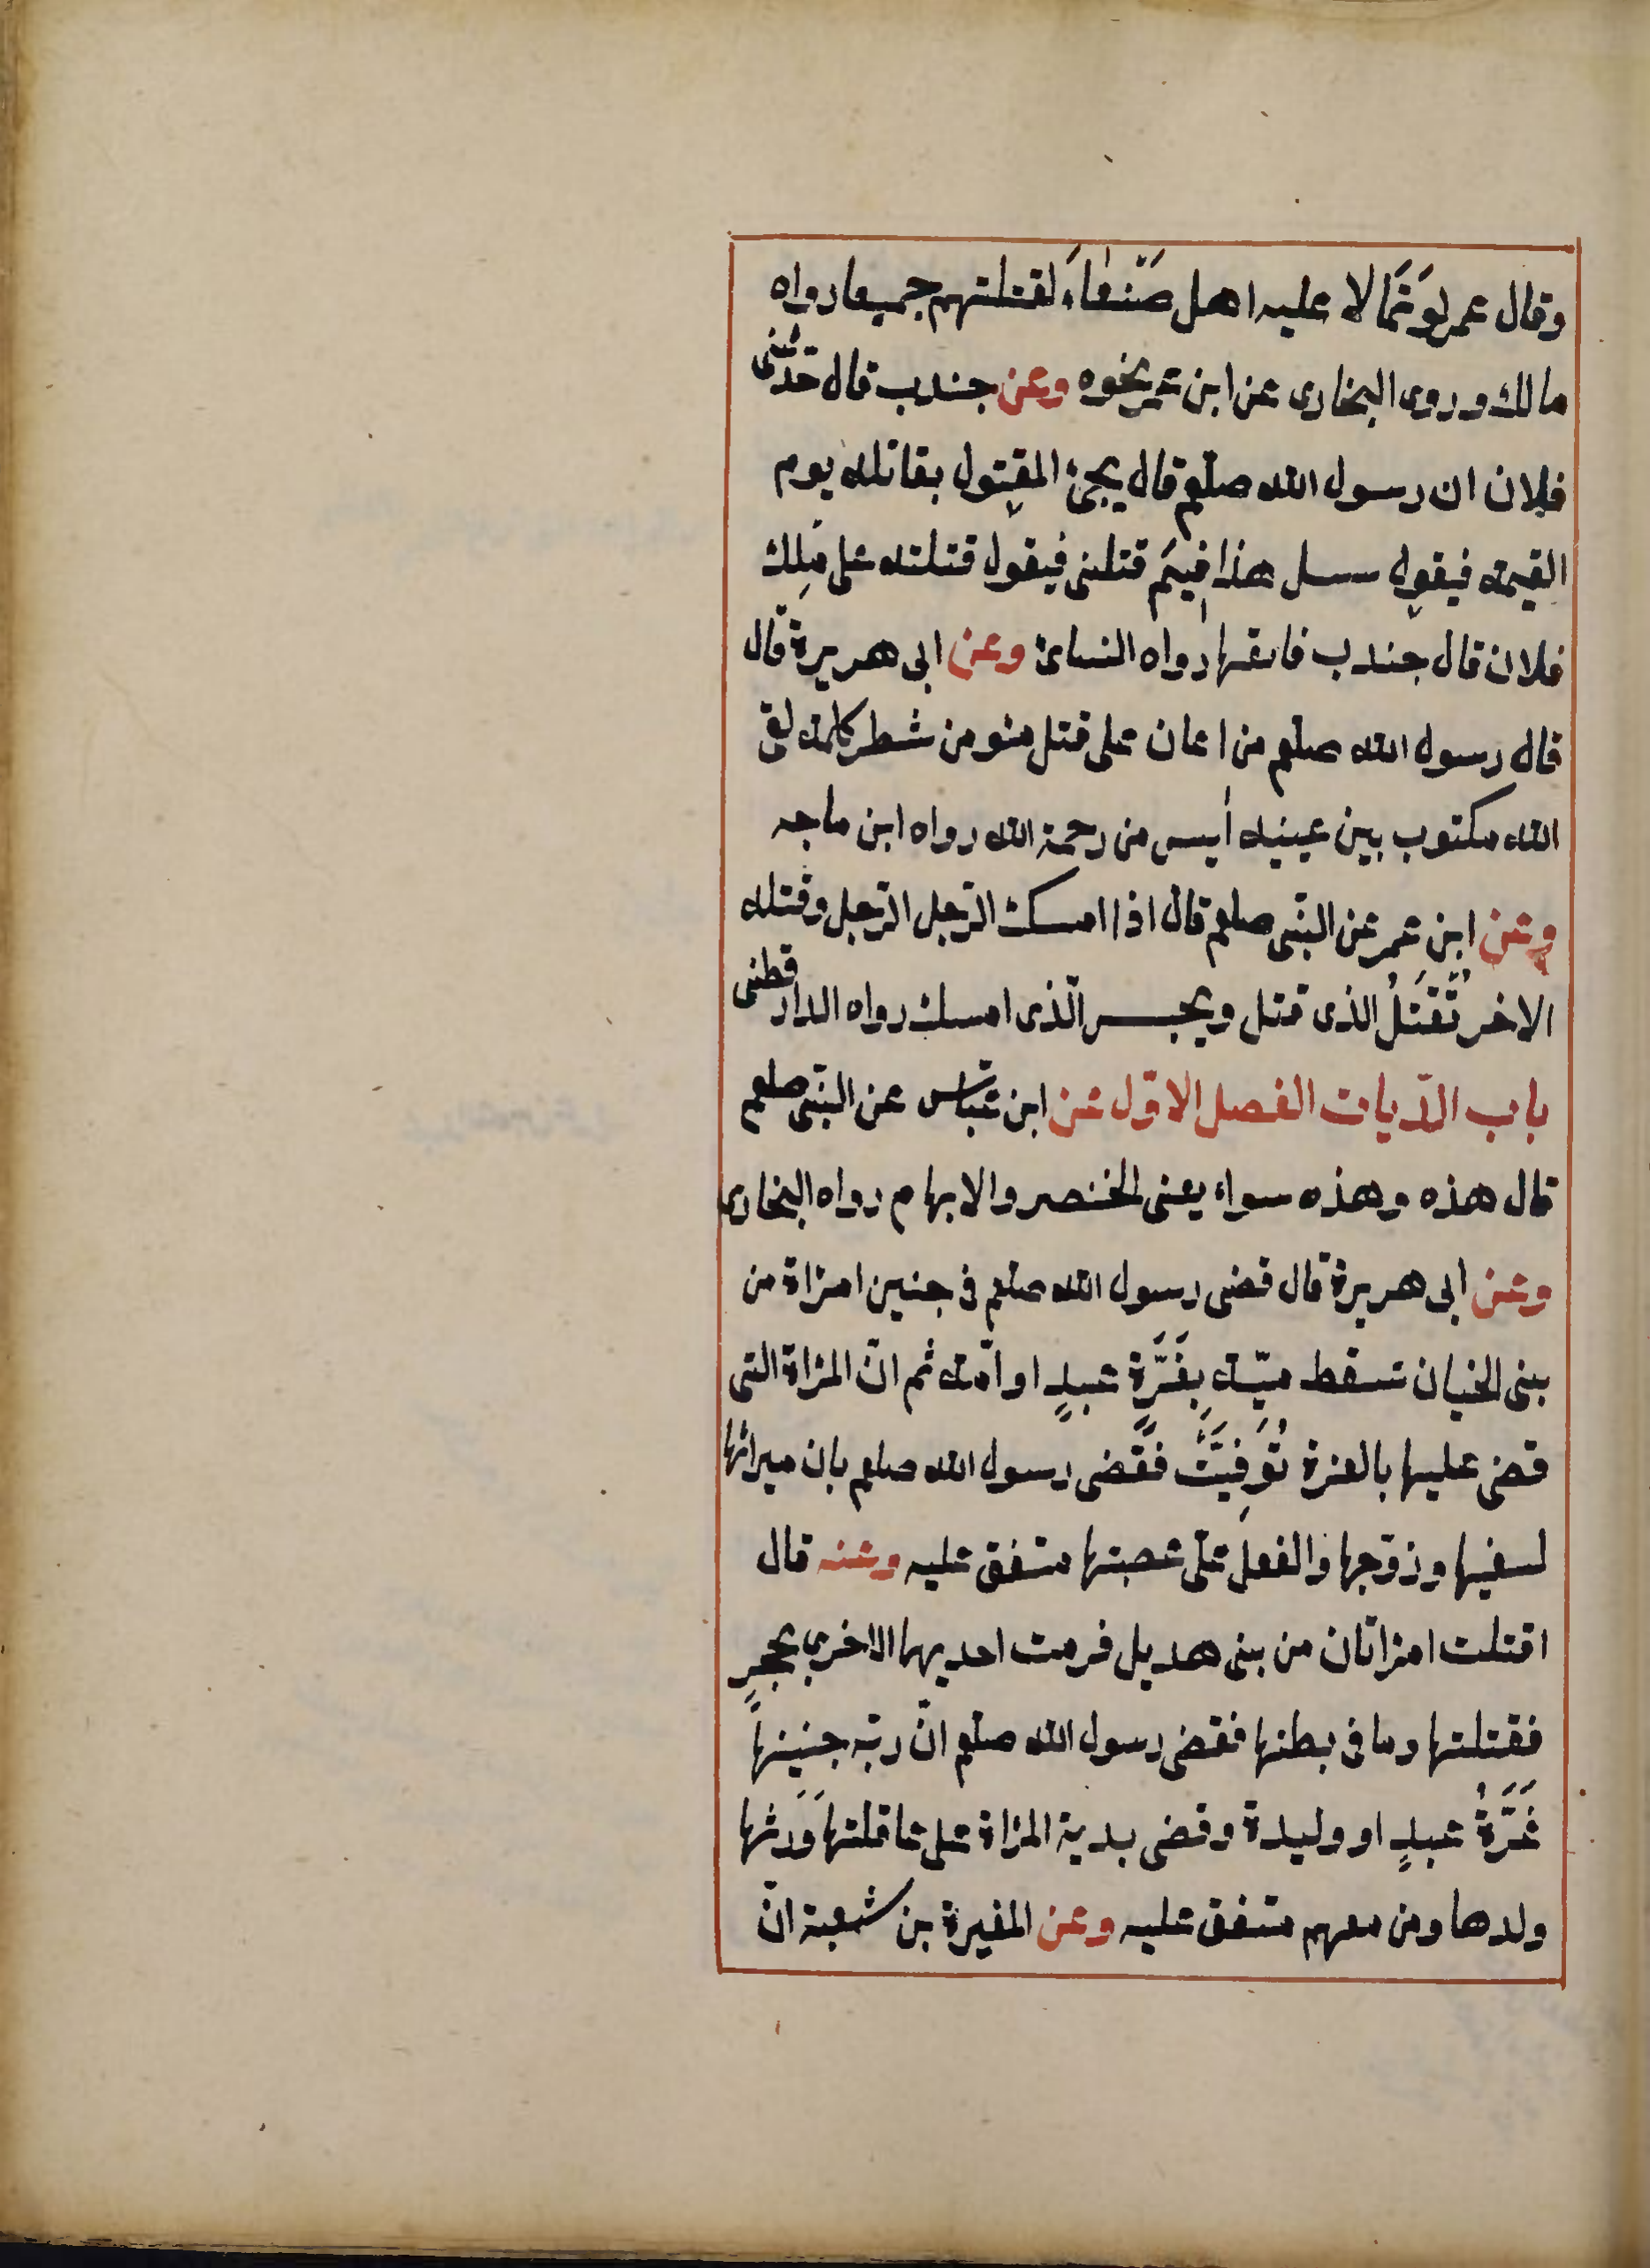 وقال عمر لوَ تَمَا لا عليه اهل صَنْعَاءَ لقتلتهم جميعا رواه
مالك وروى البخارى عن ابن عمر نحوه وعن جندب قال حَدّثنى
فلان ان رسول الله صلعم قال يجئ المقتول بقاتله يوم
القيمة فيقول سل هذا فِيمَ قتلنى فيقول قتلته على مَلِك
فلان قال جندب فاتقها رواه النسائ وعن ابى هريرة قال
قال رسول الله صلعم من اعان على قتل مئومن شطر كلمة لقى
الله مكتوب بين عينيه أيس من رحمة الله رواه ابن ماجه
وعن ابن عمر عن النّبى صلعم قال اذا امسك الرّجل الرّجل وقتله
الاخر تُقْتَلُ الذى قتل ويحبس الّذى امسك رواه الدارقطنى
باب الدّيات الفصل الاوّل عن ابن عبّاس عن النّبى صلعم
قال هذه وهذه سواء يعنى الخنصر والابهام رواه البخارى
وعن ابى هريرة قال قضى رسول الله صلعم فى جنين امراة من
بنى الخيان سقط ميّتة بِغَرَّةِ عبدٍ او اَمة ثم انّ المراة التى
قضى عليها بالغرة تُوَفِّيَتْ فَقَضى رسول الله صلعم بان ميراثها
لسفيها وزوَجها والفعل على عصبتها متفق عليه وعنه قال
اقتلت امراتان من بنى هديل فرمت احديهما الاخرى بحجرٍ
فقتلتها وما فى بطنها فقضى رسول الله صلعم انّ ربّه جنينها
غَرَّةُ عبدٍ او وليدة وقضى بدية المراة على عاقلتها وَوَرثها
ولدها ومن معهم متفق عليه وعن المغيرة بن شعبة انّ